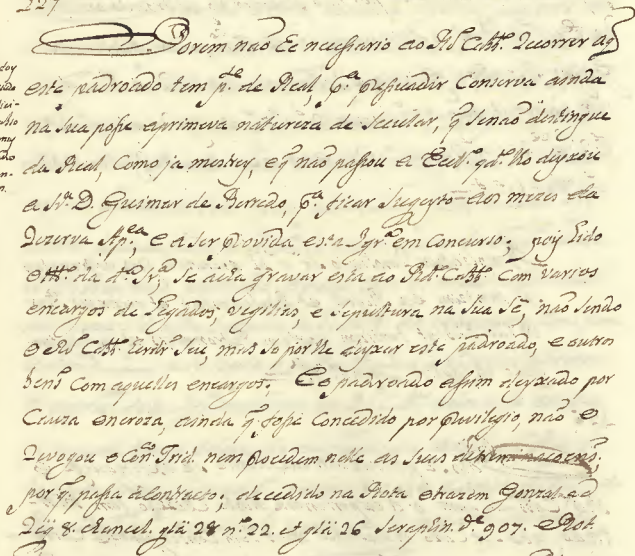 227
Porem naõ he necessario ao Rdo. Cabbo. recorrer aq̃
este padroado tem pte. de Real, pa. persuadir conserva ainda
na sua posse a primeva natureza de secular, q̃ senaõ destingue
da Real, como ja mostrey, e q̃ naõ passou a Eccl. qdo. lho deyxou
a Sra. D. Guimar de Berredo, pa. ficar sugeyto aos mezes da
rezerva Apca., e a ser provida esta Igra. em concurso; poiz lido
o tto. da da. Sra. se acha gravar esta ao Rdo. Cabbo. com varios
encargos de legados, vegilias, e sepultura na sua Sé, naõ sendo
o Rdo. Cabbo. seu, mas so por lhe deyxar este padroado, e outros
bens com aquelles encargos. E o padroado assim deyxado por
cauza oneroza, ainda q̃ fosse concedido por privilegio, naõ o
revogou o Con. Trid. nem procedem nelle as suas determinacoens;
por q̃ passa a contracto; decedido na Rota o trazem Gonzal. ad
Reg. 8. Chancel. gla 28 no. 22. et gla 26 Seraphin. de. 907. Rot.